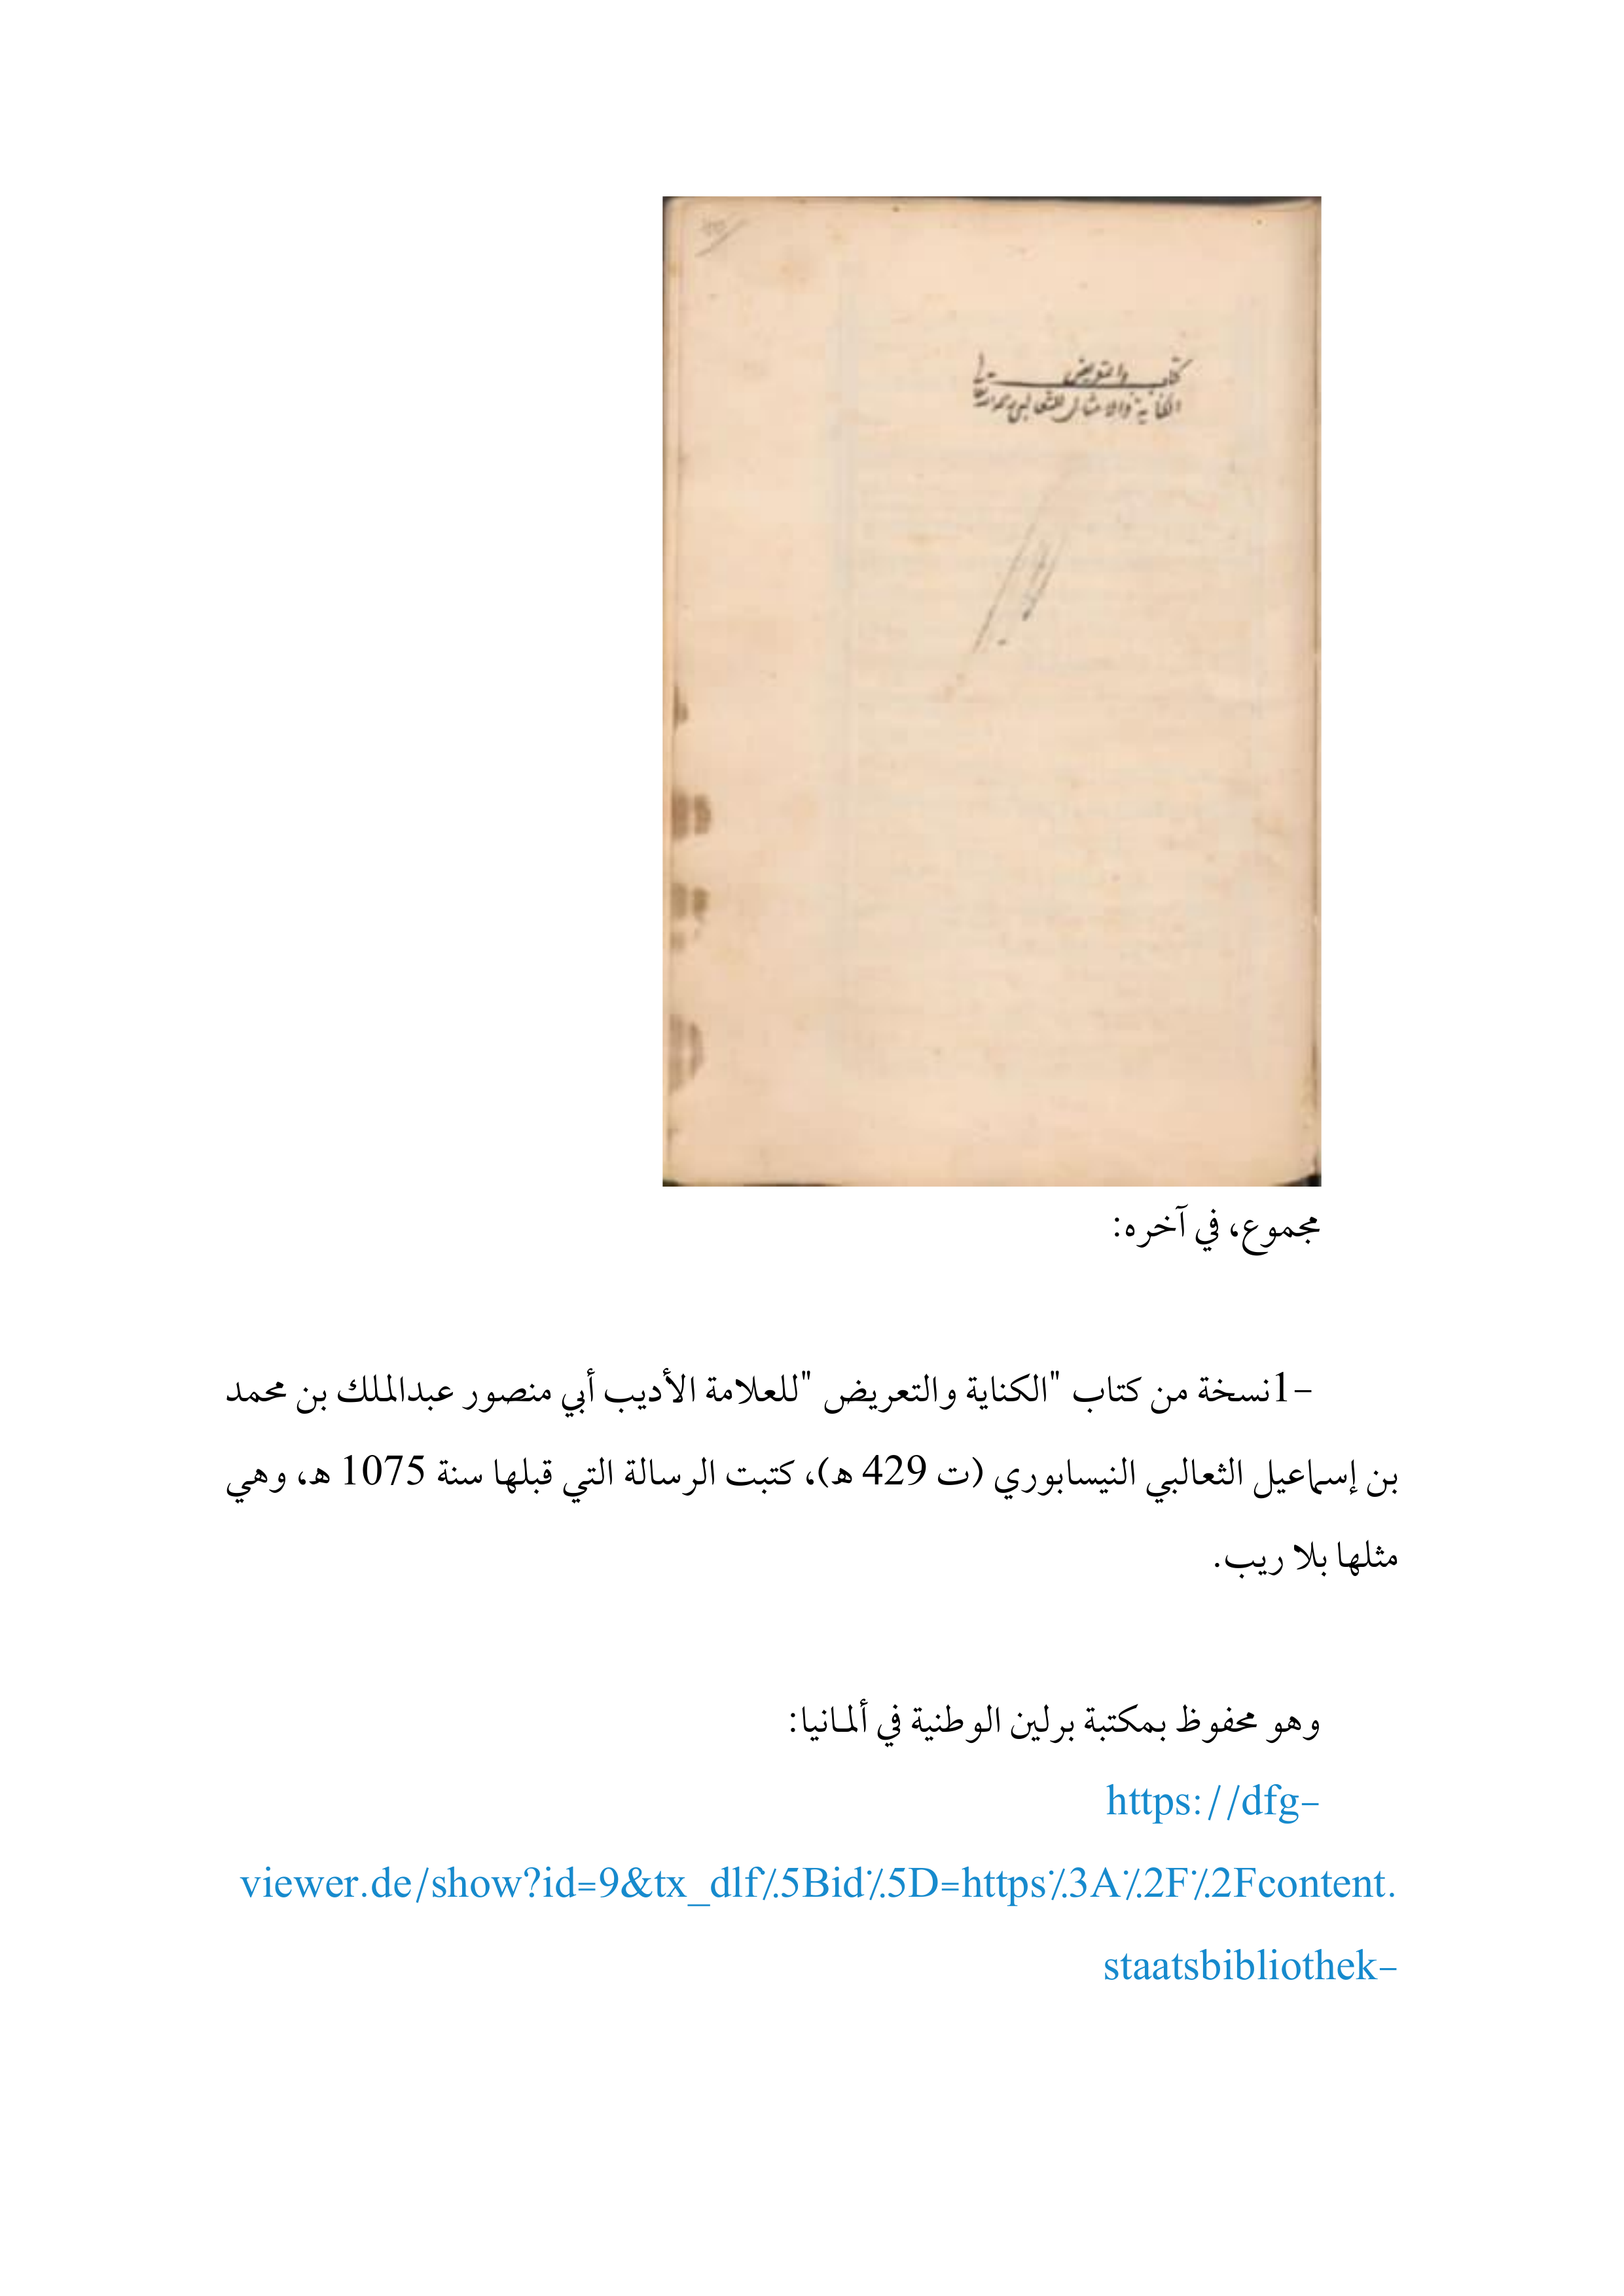 كتاب والتعريض في
الكناية والامثال للثعالبي رحمه الله تعالى
مجموع، في آخره:
1-نسخة من كتاب "الكناية والتعريض "للعلامة الأديب أبي منصور عبدالملك بن محمد
بن إسماعيل الثعالبي النيسابوري (ت 429 هـ)، كتبت الرسالة التي قبلها سنة 1075 هـ، وهي
مثلها بلا ريب.
وهو محفوظ بمكتبة برلين الوطنية في ألمانيا:
https://dfg-
viewer.de/show?id=9&tx_dlf%5Bid%5D=https%3A%2F%2Fcontent.
staatsbibliothek-